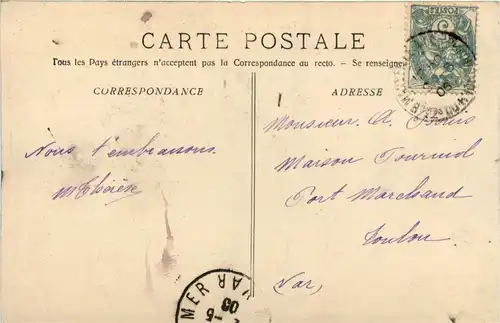 CARTE POSTALE
Tous les Pays étrangers n'acceptent pas la Correspondance au recto. — Se renseigner
CORRESPONDANCE
ADRESSE
POSTES
Monsieur A.
Maison Tournol
Port Marchand
Toulon
Var,
Nous t'embrassons
MER
VAR
5
05